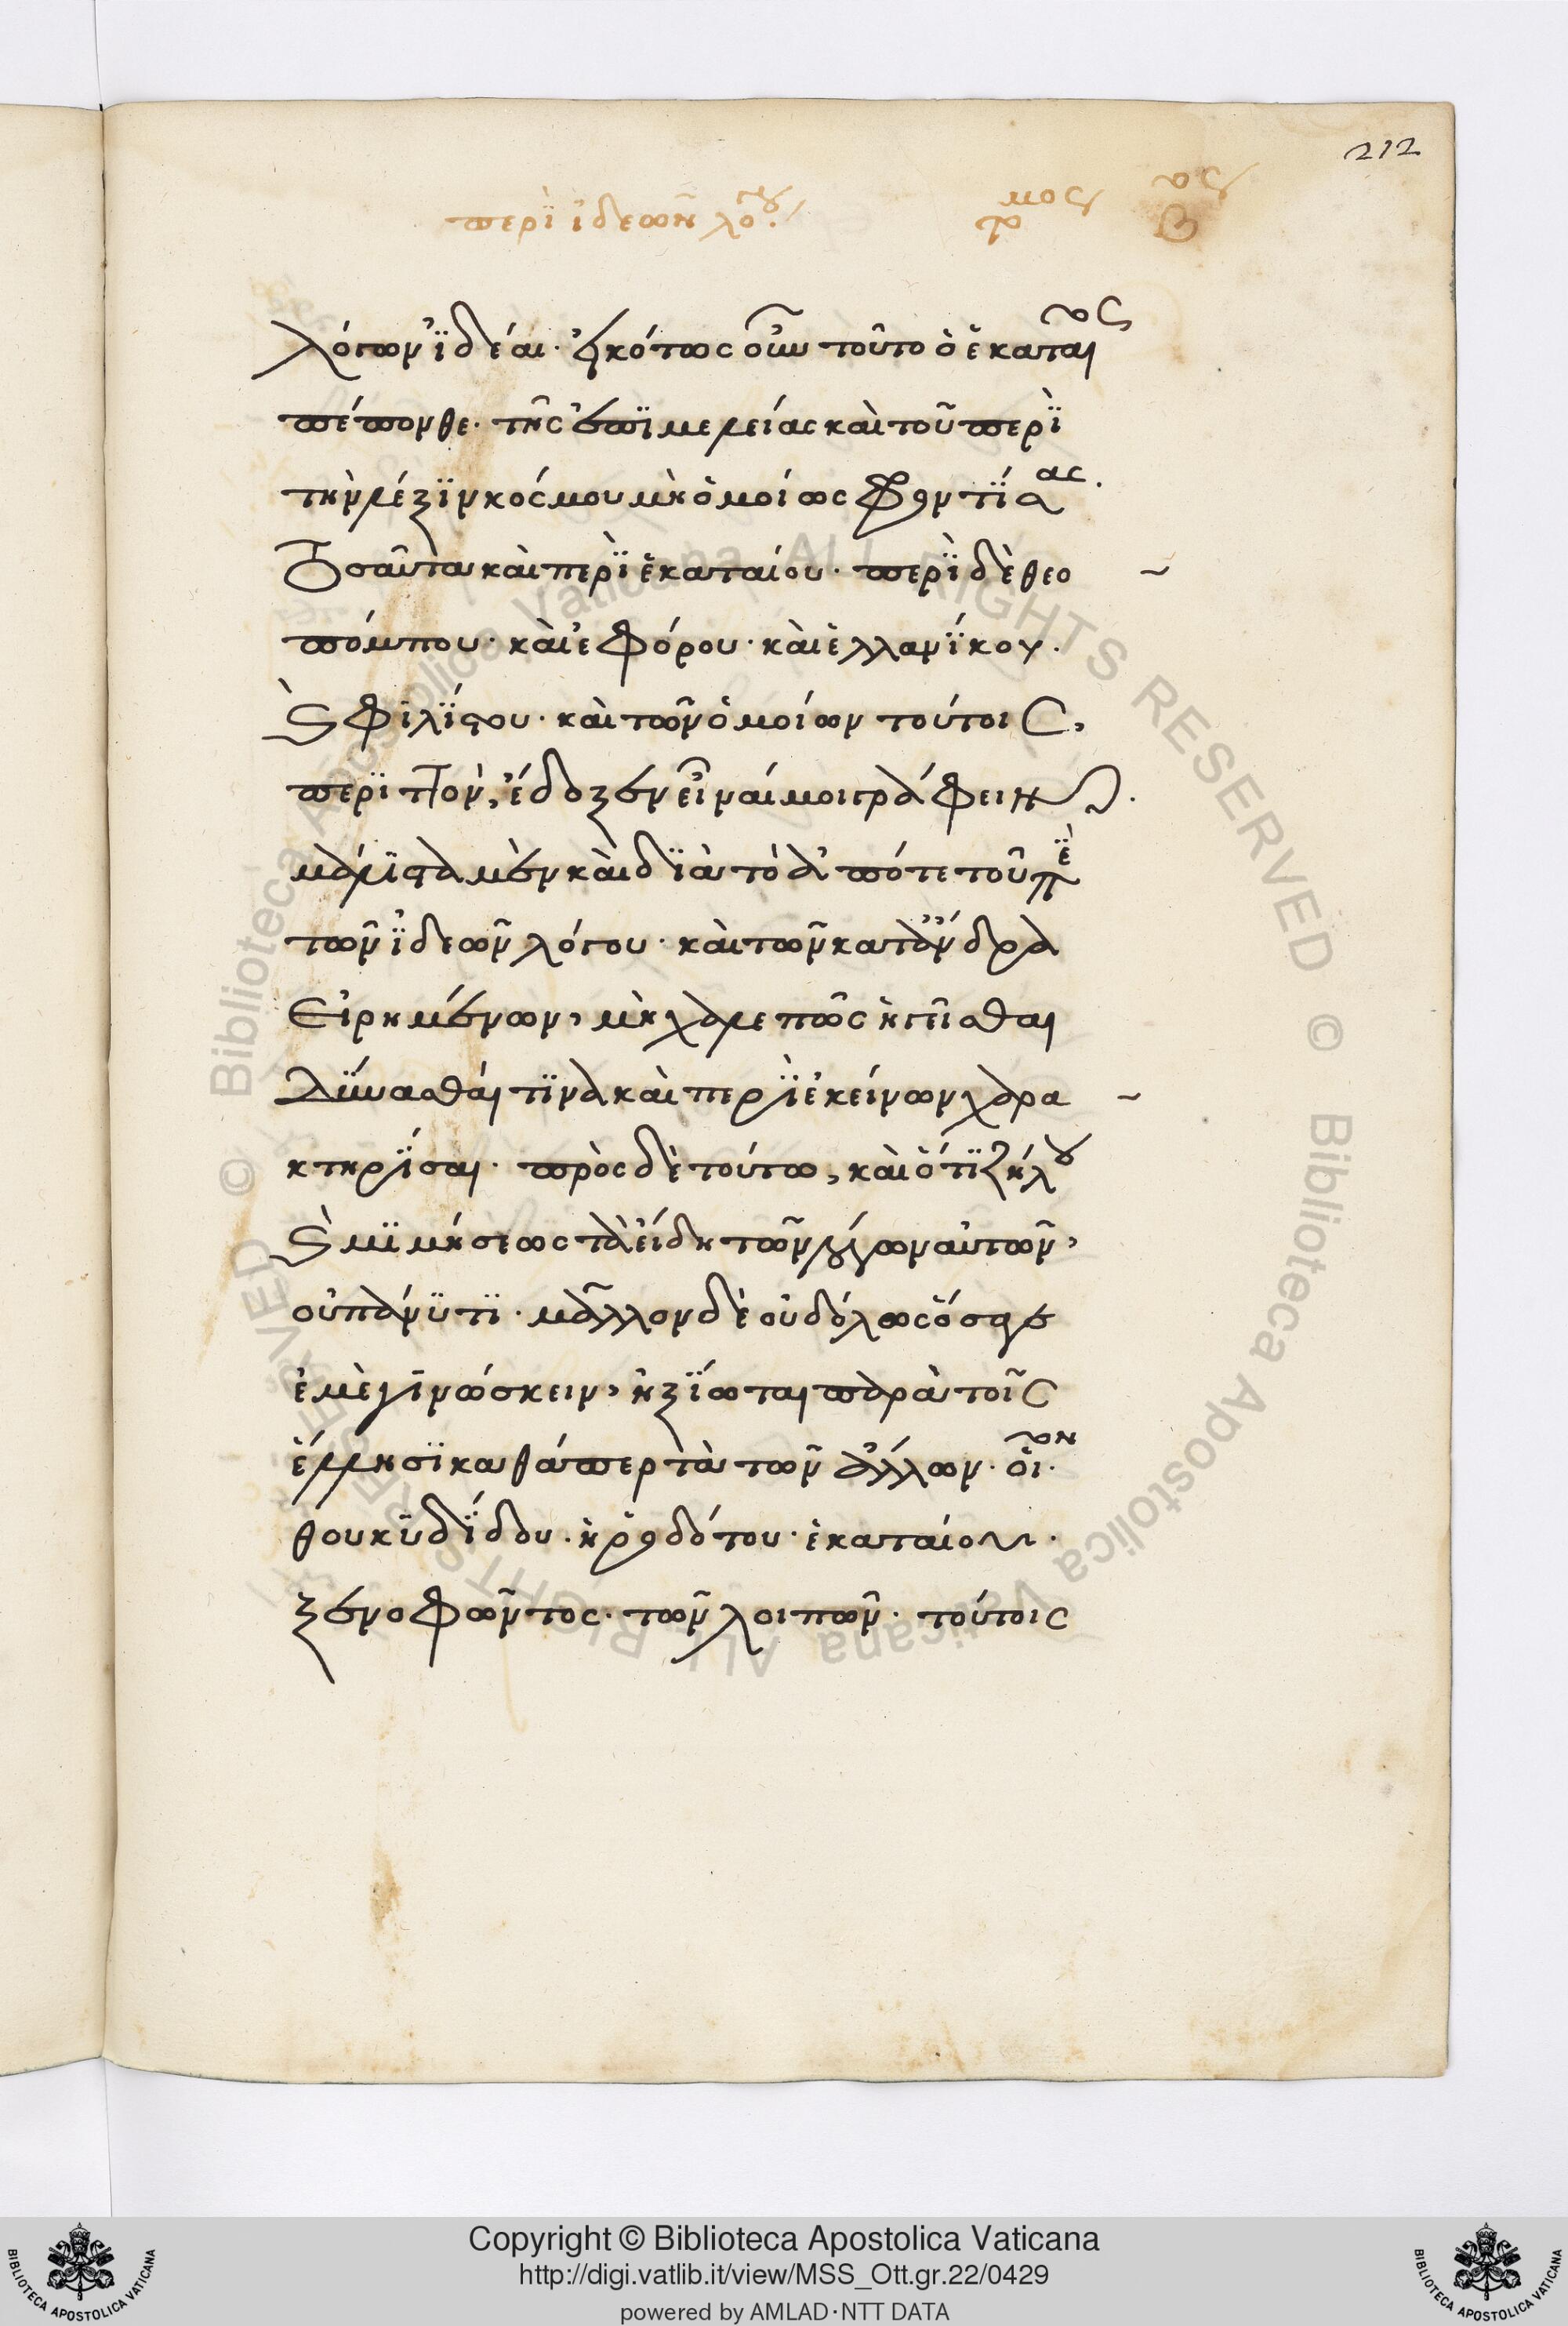 212
περὶ ἰδεῶν λόγου τόμος βος
λόγων ἰδέαι. εἰκότως οὖν τοῦτο ὁ ἑκαταῖος
πέπονθε. τῆς ἐπιμελείας καὶ τοῦ περὶ
τὴν λέξιν κόσμου μὴ ὁμοίως φροντίσας.
τοσαῦτα καὶ περὶ ἑκαταίου. περὶ δὲ θεο
πόμπου. καὶ ἐφόρου. καὶ ἑλλανίκου.
καὶ φιλίστου. καὶ τῶν ὁμοίων τούτοις,
περιττὸν, ἔδοξεν εἶναί μοι γράφειν.
μάλιστα μὲν καὶ διὰ τὸ ἀπό τε τοῦ περὶ
τῶν ἰδεῶν λόγου. καὶ τῶν κατ' ἄνδρα
εἰρημένων, μὴ χαλεπῶς ἡγεῖσθαι
δύνασθαί τινα καὶ περὶ ἐκείνων χαρα
κτηρίσαι. πρὸς δὲ τούτω, καὶ ὅτι ζήλου
καὶ μιμήσεως τὰ εἴδη τῶν λόγων αὐτῶν,
οὐ πάνυ τι. μᾶλλον δὲ οὐδόλως ὅσα γε
ἐμὲ γινώσκειν, ἠξίωται παρὰ τοῖς
ἕλλησι καθάπερ τὰ τῶν ἄλλων. οἷον.
θουκυδίδου. ἡροδότου. ἑκαταίου.
ξενοφῶντος. τῶν λοιπῶν. τούτοις
© Biblioteca Apostolica Vaticana ALL RIGHTS RESERVED © Biblioteca Apostolica Vaticana ALL RIGHTS RESERVED
BIBLIOTECA APOSTOLICA VATICANA
Copyright © Biblioteca Apostolica Vaticana
http://digi.vatlib.it/view/MSS_Ott.gr.22/0429
powered by AMLAD·NTT DATA
BIBLIOTECA APOSTOLICA VATICANA